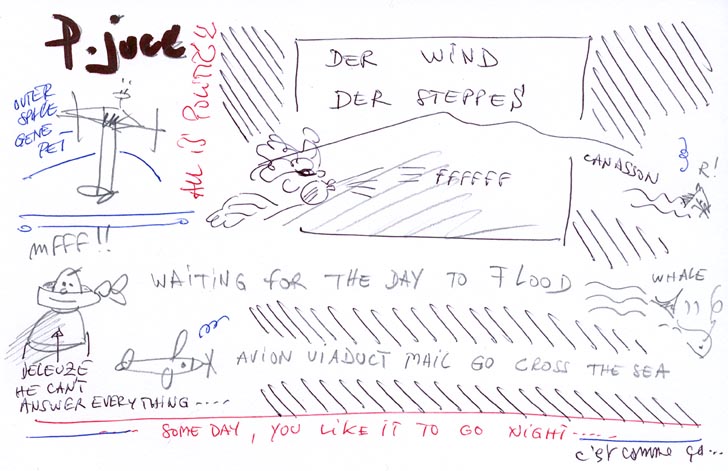 P. juce
ALL IS POLITICS
OUTER
SPACE
GENE
PET
DER WIND
DER STEPPES
FFFFFF
CANASSON
R!
MFFF!!
WAITING FOR THE DAY TO FLOOD
WHALE
DELEUZE
HE CAN'T
ANSWER EVERYTHING.....
AVION VIADUCT MAIL GO CROSS THE SEA
SOME DAY, YOU LIKE IT TO GO NIGHT.....
c'est comme ça...